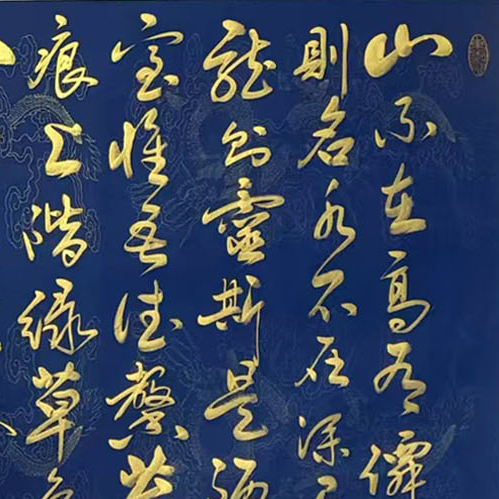 山不在高有僊
則名水不在深有
龍則靈斯是陋
室惟吾德馨苔
痕上階綠草色